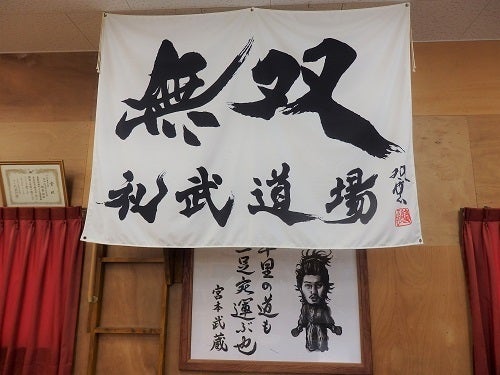 無双
礼武道場
千里の道も
一足宛運ぶ也
宮本武蔵